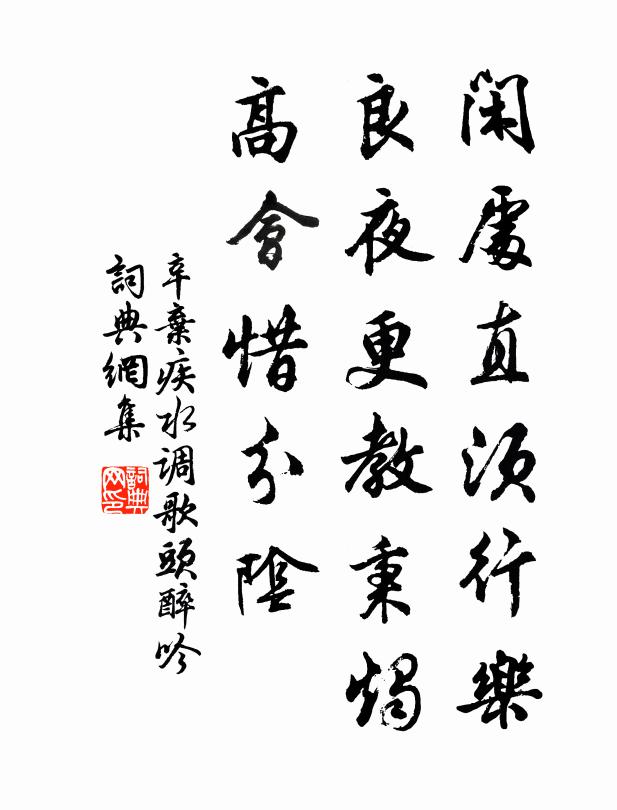 閑處直須行樂
良夜更教秉燭
高會惜分陰
辛棄疾水调歌頭醉吟
詞典網集
詞典
网印